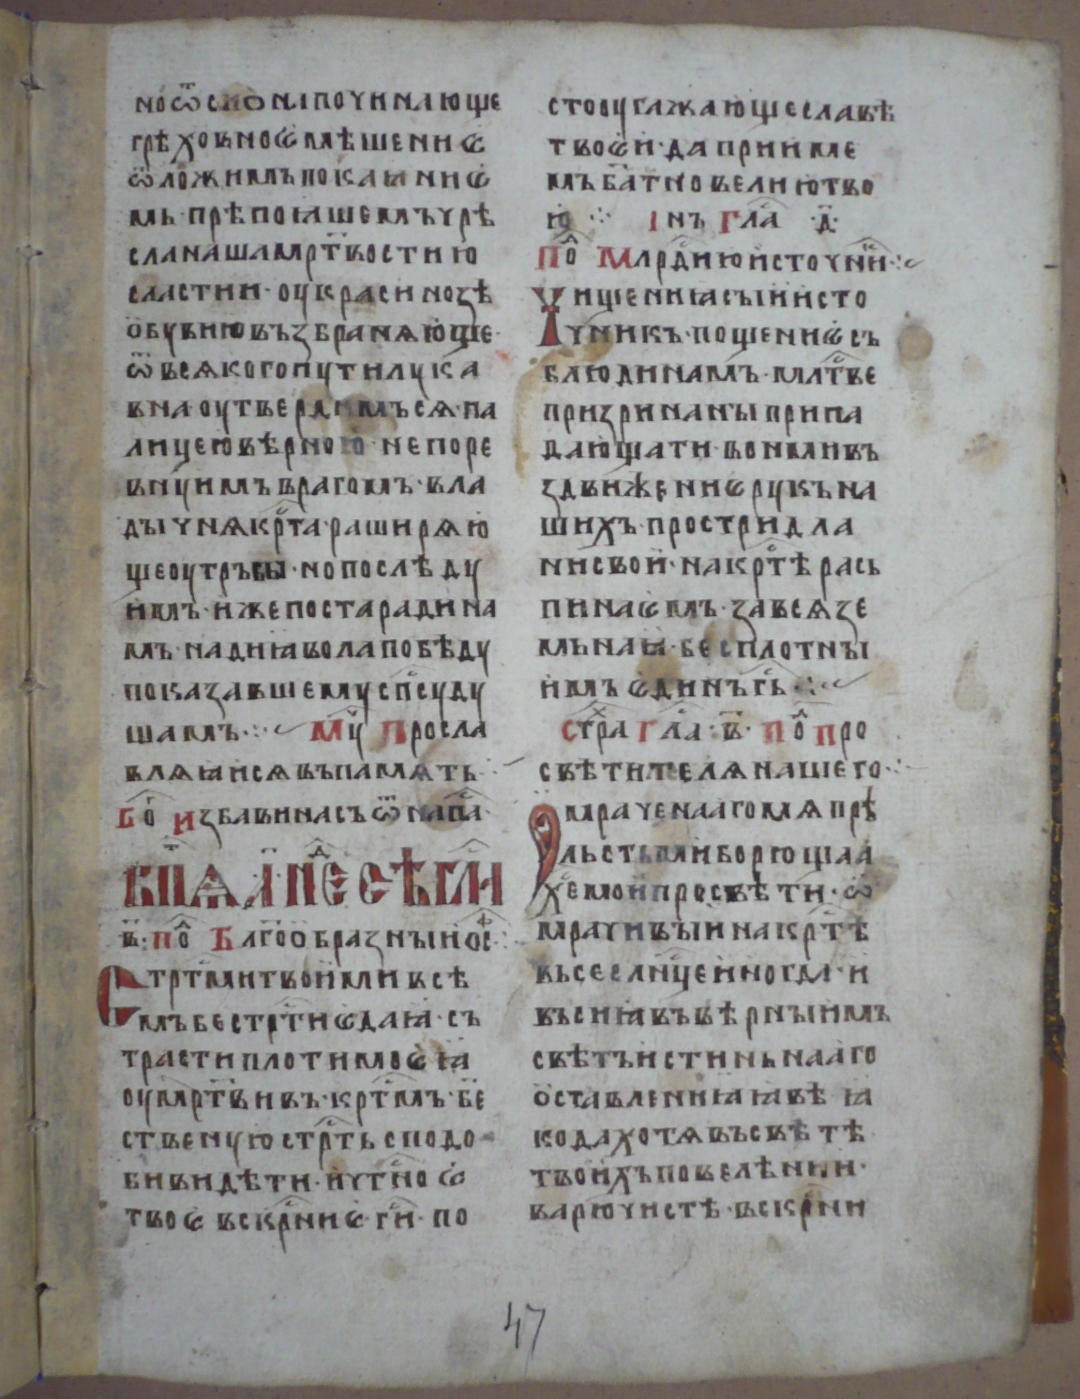 но ѿ сиона почина юще
грѣховно ѡ мѣшениѡ
ѿложимъ покаꙗниѡ
мь · прѣпоꙗшемъ чрѣ
сла наша мр҃твостию
сласти и · оукраси нозѣ
ѡбувию възбраняюще
ѿ всякого пути лука
вна · оутвердимъся · па
лицею вѣрною · не поре
внуимъ врагомъ · вла
дычня кр҃та · раширяю
ще оутрьбы · но послѣду
имъ · иже поста ради на
мъ · на диꙗвола побѣду
показавшему сп҃су ду
шамъ ·:· Му҃ Просла
вляꙗися въ память ·
Бо҃ Избави насъ ѿ напа҃
Вп҃ѧ а҃ пс҃е сѣ гл҃и
в҃ : по҃ Благоѡбразныи ѡс҃
Стр҃тми твоими всѣ
мъ бестр҃тиѡ даꙗ · съ
трасти плоти моѡꙗ
оумр҃тви въ · кр҃тмъ · бе҃
ственую стр҃ть сподо
би видѣти · и ч҃тно ѡ
твоѡ въскр҃ниѡ г҃и · по
сто оугажающе славѣ
твоѡи · да приимме
мъ бл҃ат но велию тво
ю ·:· Інъ Гла҃ · д҃ ·
По҃ Млр҃дию источни҃ ·:·
Чищениꙗ сыи исто
чникъ · пощениѡ съ
блюди намъ · мл҃тве
призри на ны припа
дающа ти · вонми въ
здвижениѡ рукъ на
шихъ · простри дла
ни свои · на кр҃тѣ рась
пинаѡмъ · за вся зе
мьнаꙗ · бесплотны
имъ ѡдинъ г҃ь ·:·
Стра҃ Гла҃ · в҃ · По҃ Про
свѣтителя нашего ·:·
Омраченааго мя прѣ
льстьми борющаа
х҃е мои просвѣти · ѿ
мрачивыи на кр҃тѣ
вьсе слн҃це иногда · и
въсиꙗвъ вѣрныимъ
свѣтъ истиньнааго
оставлениꙗ ꙗвѣ ꙗ
ко да хотя въ свѣтѣ
твоихъ повелѣнии ·
варю чистѣ · въскр҃ни
47